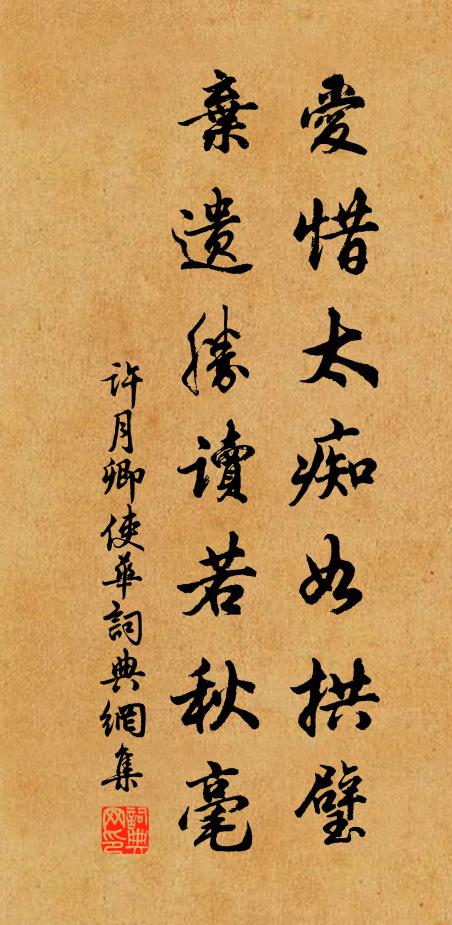 愛惜太痴如拱璧
棄遗勝讀若秋毫
许月卿使華詞典網集
詞典网印